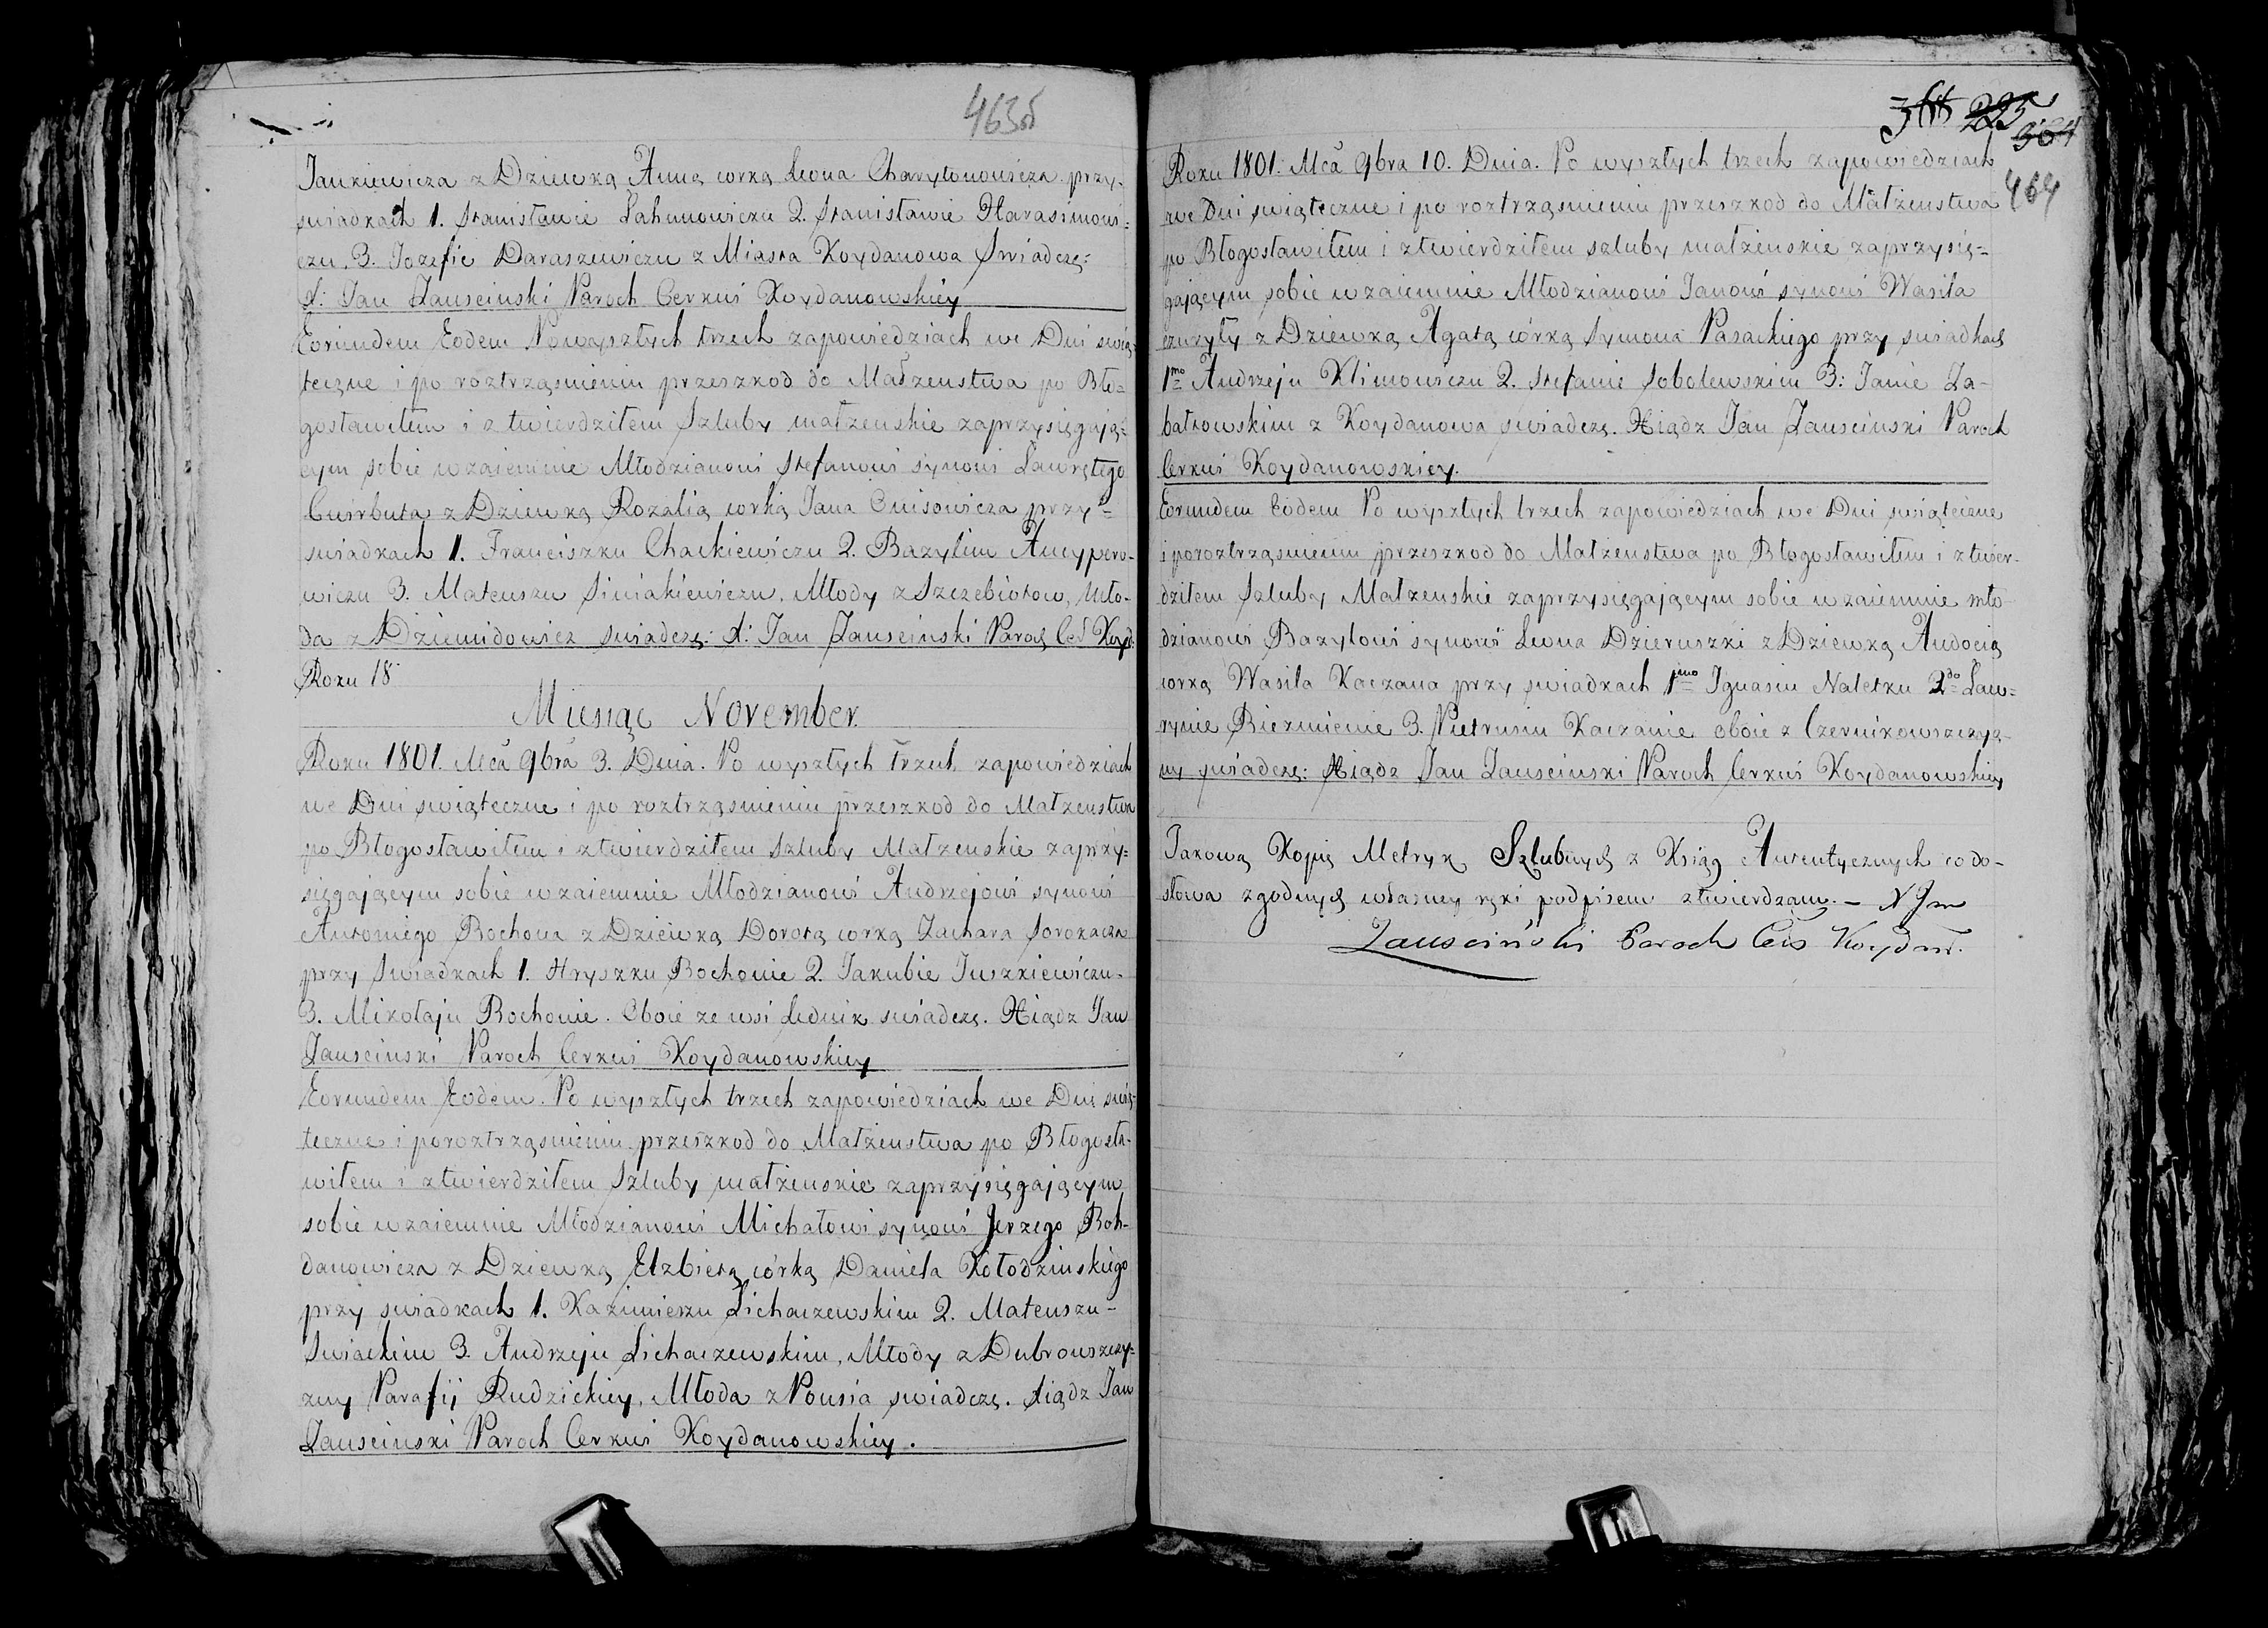 463об
Jankiewicza z Dziewką Anną corką Leona Charytonowicza przy-
swiadkach 1. Stanisławie Lahunowiczu 2. Stanisławie Harasimowi-
czu. 3. Jozefie Daraszewiczu z Miasta Koydanowa Swiadczę:
X: Jan Zausciński Paroch Cerkwi Koydanowskiey
Eorundem Eodem Po wyszłych trzech zapowiedziach we Dni swią-
teczne i po roztrząsnieniu przeszkod do Małzenstwa po Bło-
gosławiłem i ztwierdziłem Szluby małzenskie zaprzysięgają-
cym sobie wzaiemnie Młodzianowi Stefanowi synowi Ławrętego
Cwirbuta z Dziewką Rozalią corką Jana Cwisowicza przy-
swiadkach 1. Franciszku Chackiewiczu 2. Bazylim Ancypero-
wiczu 3. Mateuszu Siniakiewiczu, Młody z Szczebiotow, Mło-
da z Dziemidowicz swiadczę: X: Jan Zausciński Paroch Cer Koyd:
Roku 18
Miesiąc November.
Roku 1801. Mca 9bra 3. Dnia. Po wyszłych trzech zapowiedziach
we Dni swiąteczne i po roztrząsnieniu przeszkod do Małzenstwa
po Błogosławiłem i ztwierdziłem Szluby Małzenskie zaprzy-
sięgającym sobie wzaiemnie Młodzianowi Andrzejowi synowi
Antoniego Bochona z Dziewką Dorotą corką Zachara Sorokacza
przy Swiadkach 1. Hryszku Bochonie 2. Jakubie Juszkiewiczu-
3. Mikołaju Bochonie. Oboie ze wsi Lednik swiadczę. Xiądz Jan
Zausciński Paroch Cerkwi Koydanowskiey
Eorundem Eodem. Po wyszłych trzech zapowiedziach we Dni swią-
teczne i poroztrząsnieniu przeszkod do Małzenstwa po Błogosła-
wiłem i ztwierdziłem Szluby małzenskie zaprzysięgającym
sobie wzaiemnie Młodzianowi Michałowi synowi Jerzego Boh-
danowicza z Dziewką Elzbietą córką Daniela Kołodzinskiego
przy swiadkach 1. Kazimierzu Lichaczewskim 2. Mateuszu-
Swiackim 3. Andrzeju Lichaczewskim, Młody z Dubrowszczy-
zny Parafij Rudzickiey, Młoda z Pousia swiadczę. Xiądz Jan
Zausciński Paroch Cerkwi Koydanowskiey.
225
364
464
Roku 1801. Mca 9bra 10. Dnia. Po wyszłych trzech zapowiedziach
we Dni swiąteczne i po roztrząsnieniu przeszkod do Małzenstwa
po Błogosławiłem i ztwierdziłem szluby małzenskie zaprzysię-
gającym sobie wzaiemnie Młodzianowi Janowi synowi Wasila
czuryły z Dziewką Agatą córką Symona Pasackiego przy swiadkach
1mo Andrzeju Klimowiczu 2. Stefanie Sobolewskim 3: Janie Za-
bałkowskim z Koydanowa swiadczę. Xiądz Jan Zausciński Paroch
Cerkwi Koydanowskiey.
Eorundem Eodem Po wyszłych trzech zapowiedziach we Dni swiąteczne
i poroztrząsnieniu przeszkod do Małzenstwa po Błogosławiłem i ztwier-
dziłem Szluby Małzenskie zaprzysięgającym sobie wzaiemnie mło-
dzianowi Bazylowi synowi Leona Dzieruszki z Dziewką Audocią
corką Wasila Kaczana przy swiadkach 1mo Ignasiu Naletku 2do Ław-
rynie Biezmienie 3. Pietrusiu Kaczanie oboie z Czernikowszczyz-
ny swiadczę: Xiądz Jan Zausciński Paroch Cerkwi Koydanowskiey
Takową Kopię Metryk Szlubnych z Xiąg Autentycznych co do-
słowa zgodnych własney ręki podpisem ztwierdzam. – X Jan
Zausciński Paroch Cer Koydan.